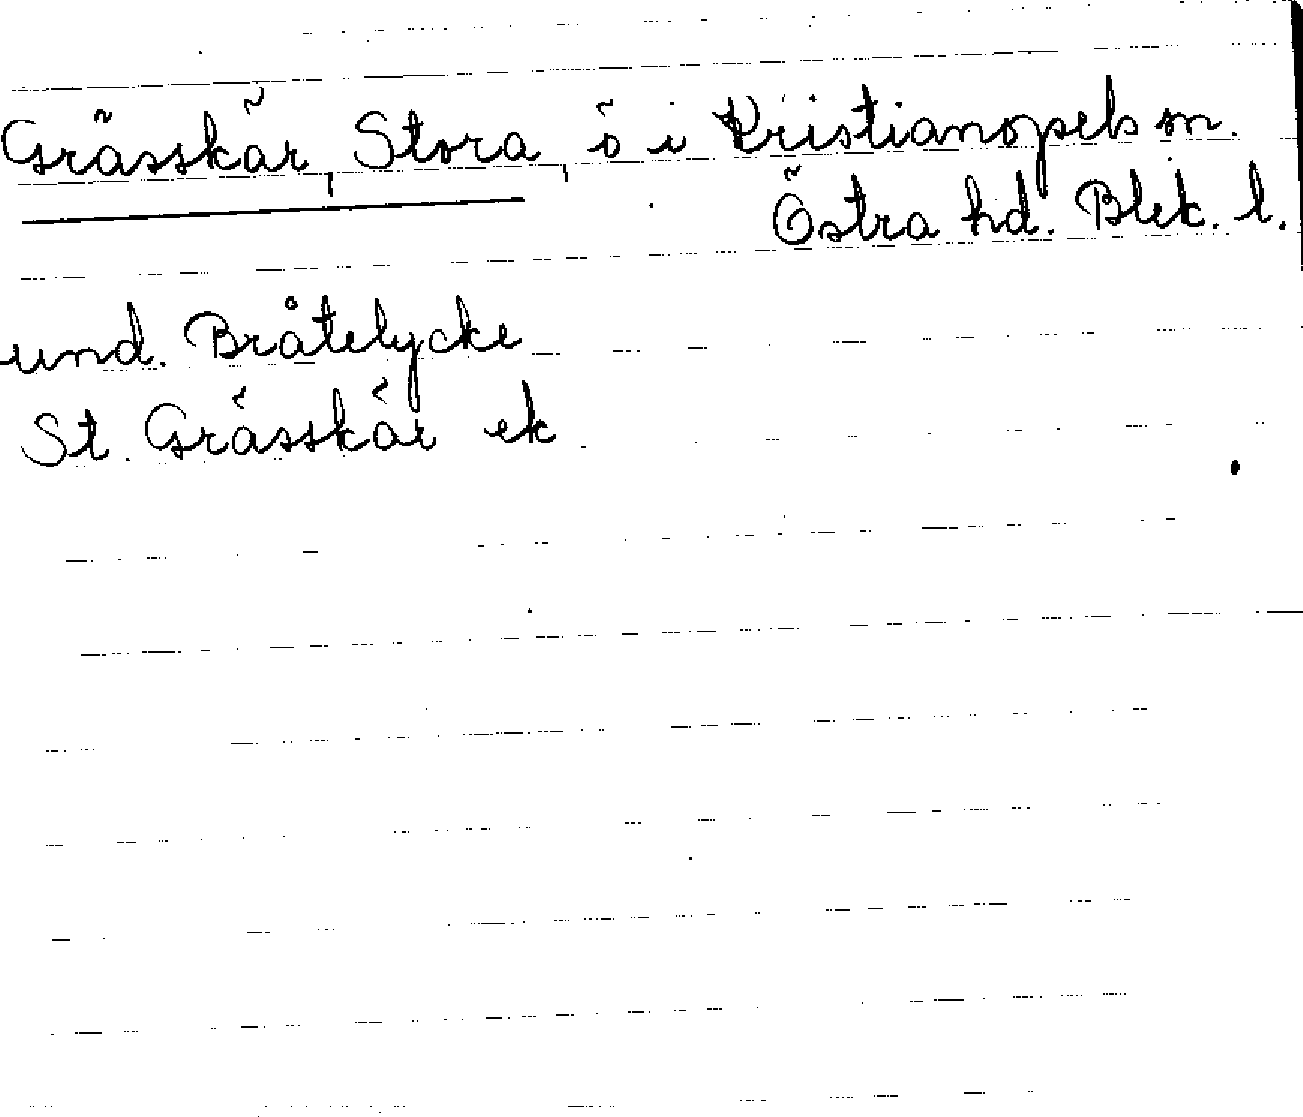 Grässkär, Stora, ö i Kristianopels sn.
Östra hd. Blek. l.
und. Bråtelycke
St. Grässkär ek